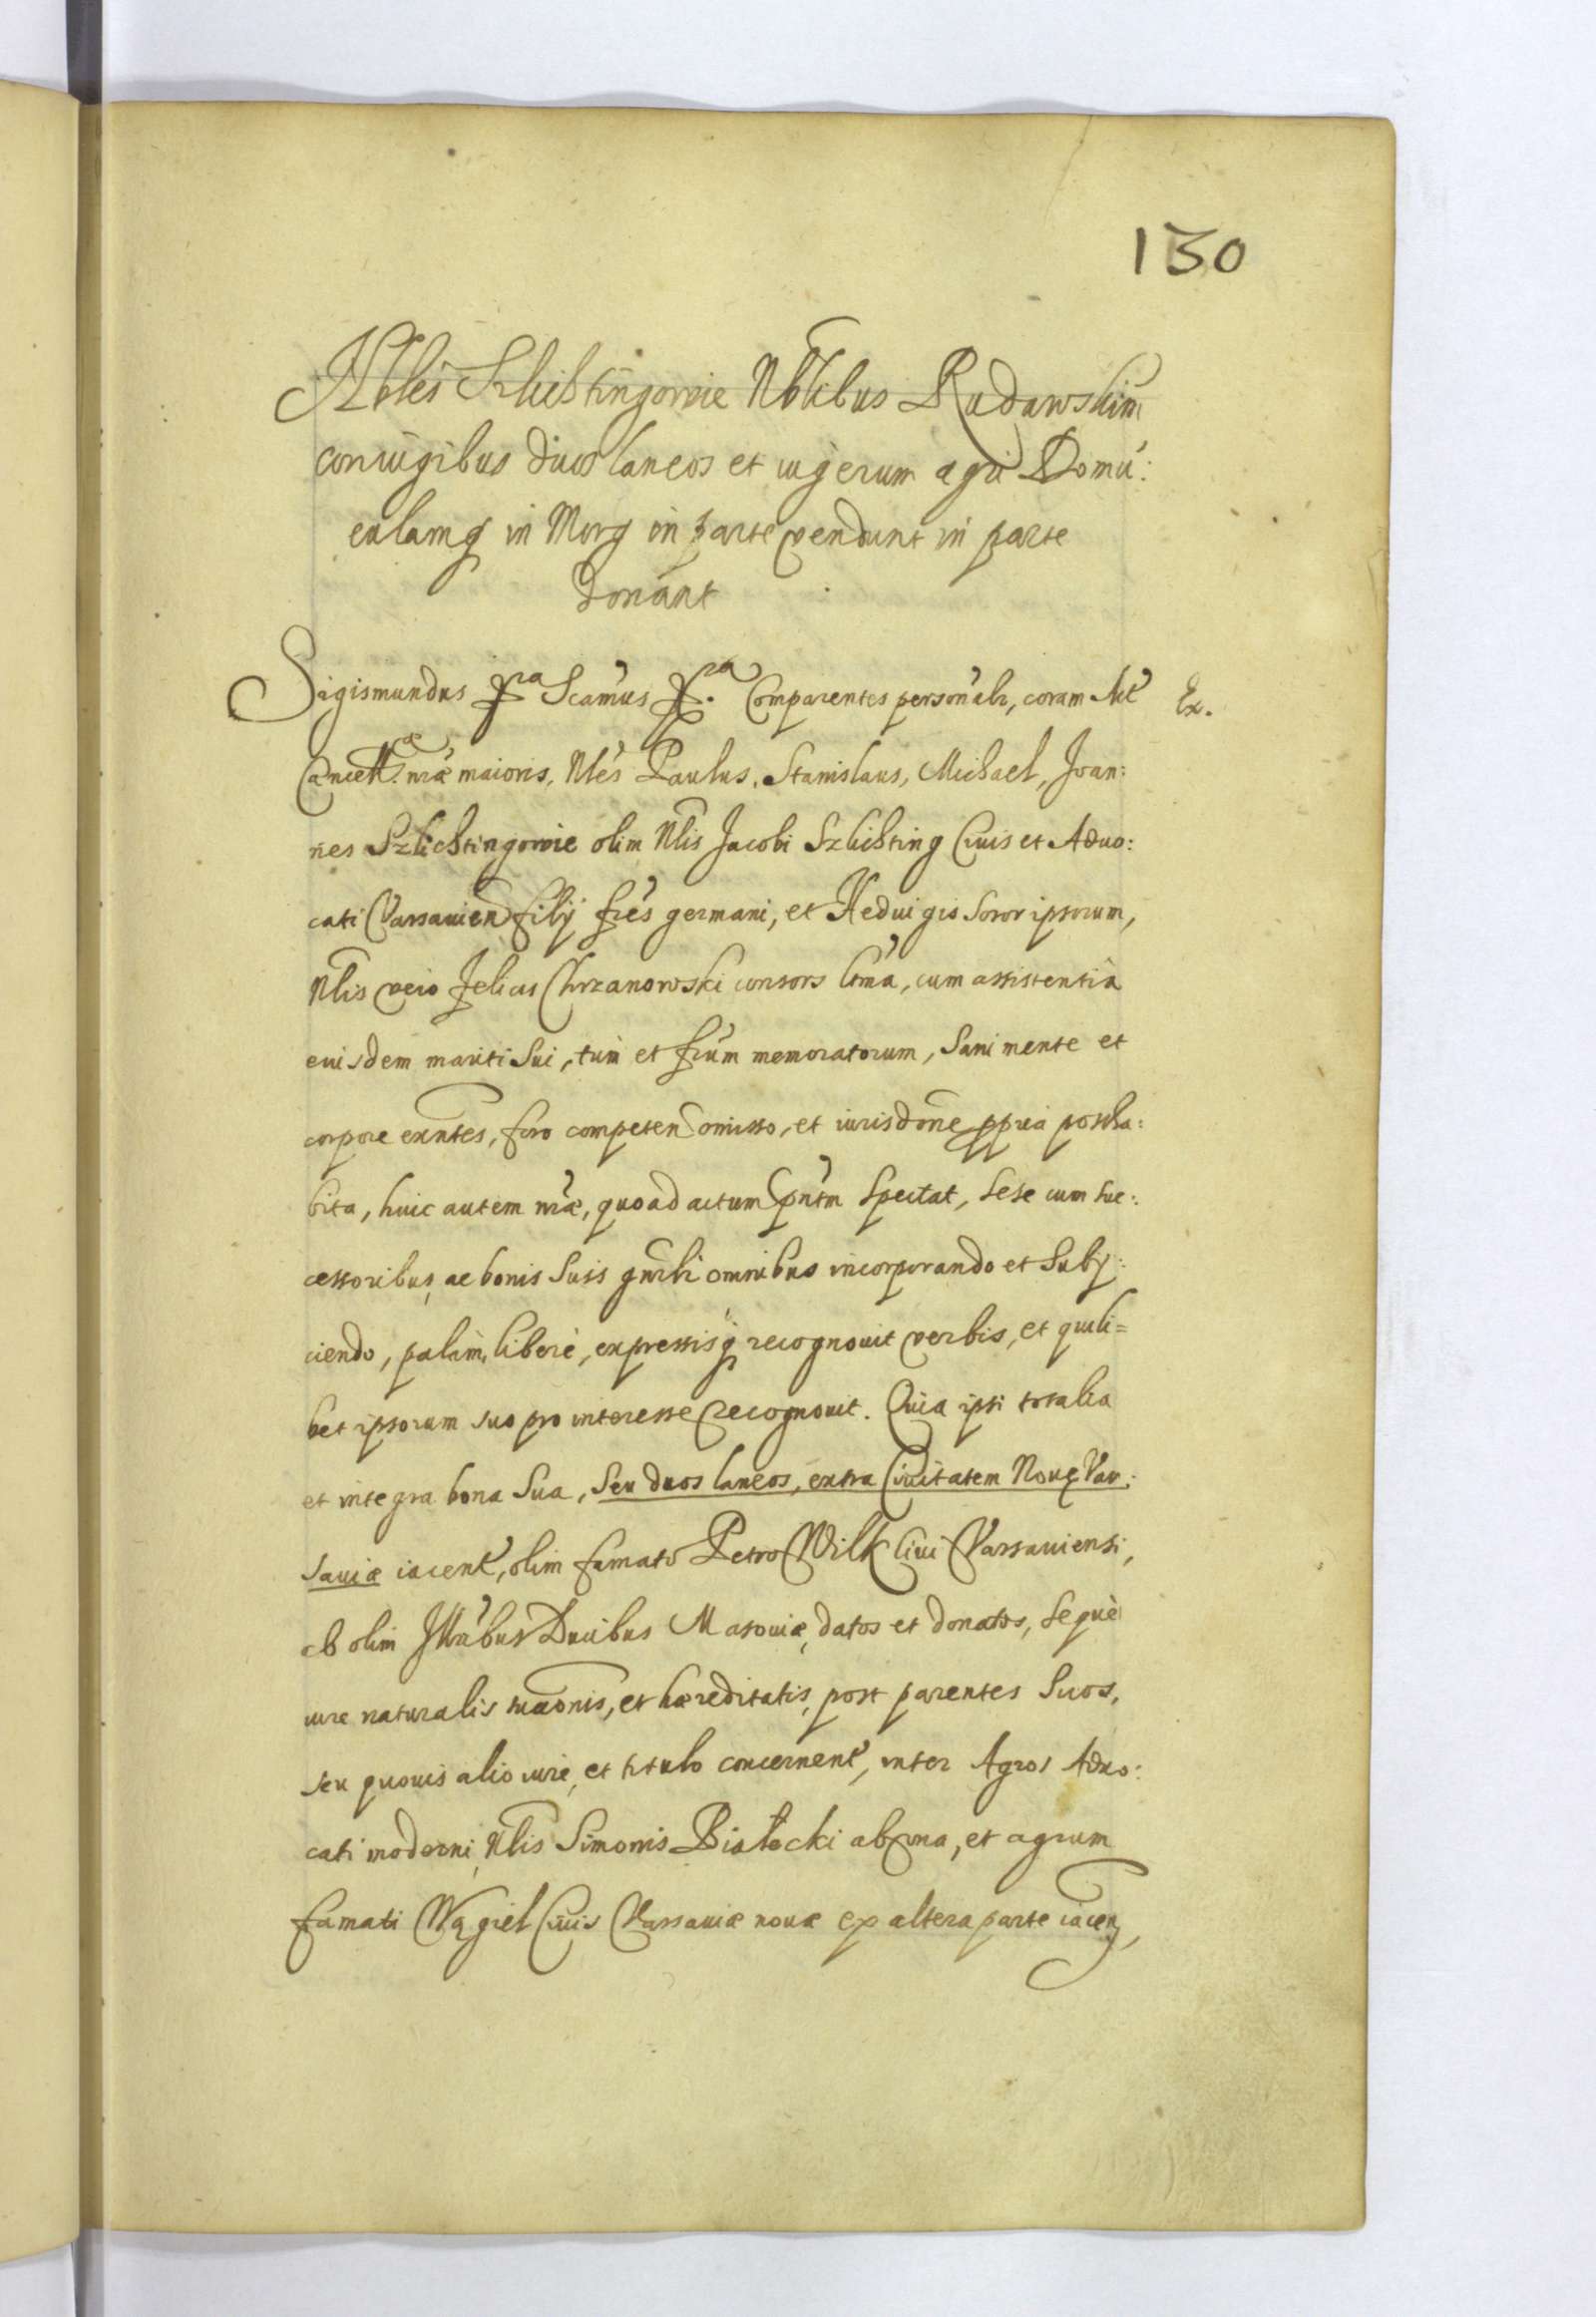 130
Nbles Szlichtingowie Nblibus Rudawskim
coniugibus duos laneos et iugerum agri Domu:
culamq in Morg in parte vendunt in parte
donant
Sigismundus pra Scamus pra. Comparentes personalr, coram Act Ex.
Cancell. nrae maioris, Nles Paulus, Stanislaus, Michael, Joan:
nes Szlichtingowie olim Nlis Jacobi Szlichting Ciuis et Aduo:
cati Varsauien filij fres germani, et Heduigis soror ipsorum,
Nlis vero Felicis Chrzanowski consors ltma, cum assistentia
eiusdem mariti sui, tum et frum memoratorum, sani mente et
corpore exntes, foro competen omisso, et iurisdone ppria postha:
bita, huic autem nrae, quoad actum pntm spectat, sese cum suc:
cessoribus, ac bonis suis gnrlr omnibus incorporando et subij:
ciendo, palam, libere, expressisq recognouit verbis, et quili=
bet ipsorum suo pro interesse recognouit. Quia ipsi totalia
et integra bona sua, seu duos laneos, extra Ciuitatem Nouę Var:
sauiæ iacent, olim famato Petro Wilk Ciui Varsauiensi,
ab olim Illribus Ducibus Masouiæ, datos et donatos, seque
iure naturalis suaonis, et hæreditatis, post parentes suos,
seu quouis alio iure, et titulo concernent, inter Agros Aduo:
cati moderni, Nlis Simonis Białocki ab una, et agrum
famati Wągiel Ciuis Varsauiæ nouæ ex altera parte iacen,